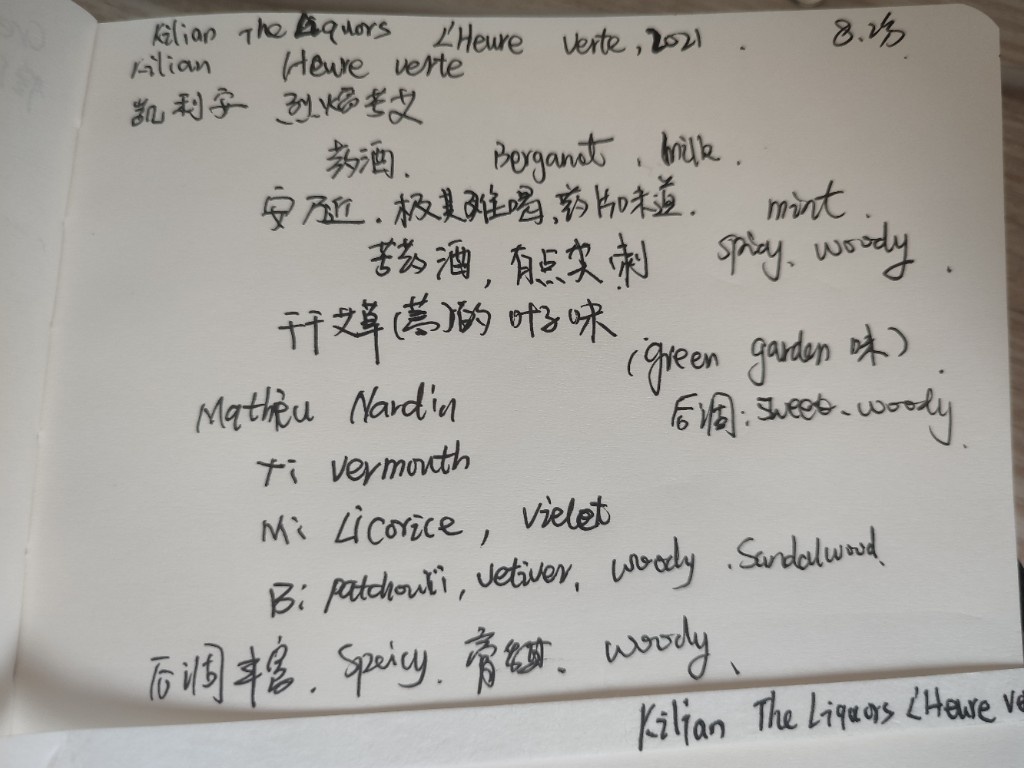 Kilian The Liquors L'Heure verte, 2021. 8.25
Kilian Heure verte
凯利安 烈焰苦艾
药酒. Berganot, milk.
安 极其难喝,药片味道. mint.
苦药酒,有点尖刺 spicy、woody.
干干艾草(蒿)的叶子味
(green garden 味).
Mathieu Nardin
后调:sweet、woody.
T: vermouth
M: Licorice, violet
B: patchouli, vetiver, woody. Sandalwood.
后调丰富. Speicy. 膏 woody、
Kilian The Liquors L'Heure ve